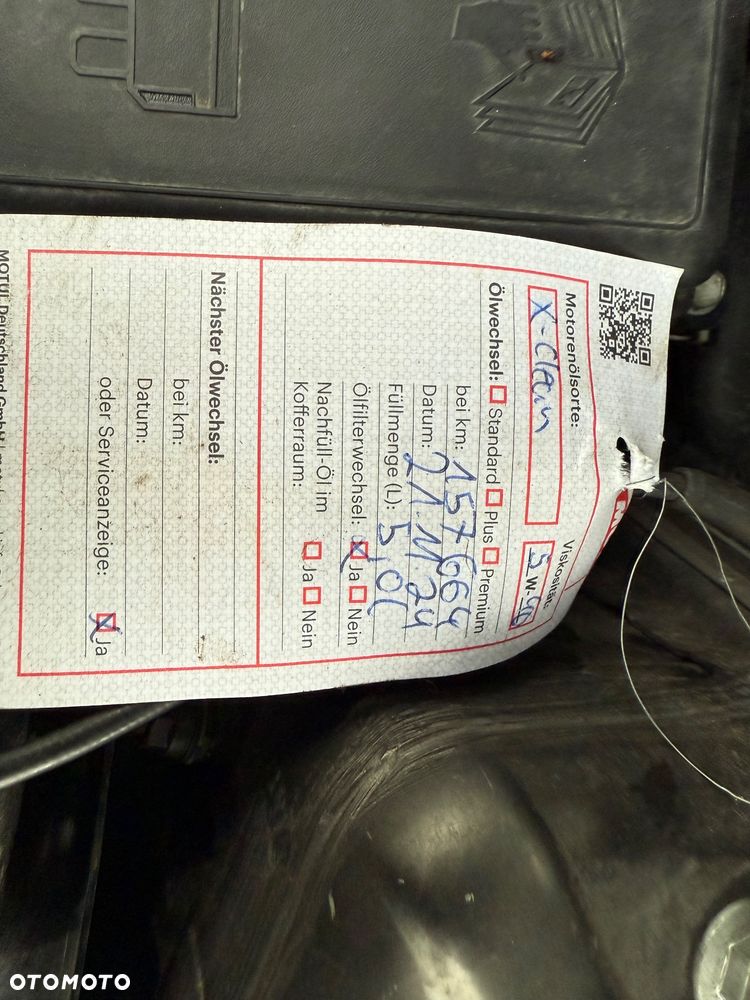 Motorenölsorte:
Viskosität:
X-Clean
5 W-40
Ölwechsel: Standard Plus Premium
bei km: 157664
Datum: 21.11.24
Füllmenge (L): 5,0L
Ölfilterwechsel: X Ja Nein
Nachfüll-Öl im
Kofferraum: Ja Nein
Nächster Ölwechsel:
bei km:
Datum:
oder Serviceanzeige: X Ja
MOTUL Deutschland GmbH
OTOMOTO